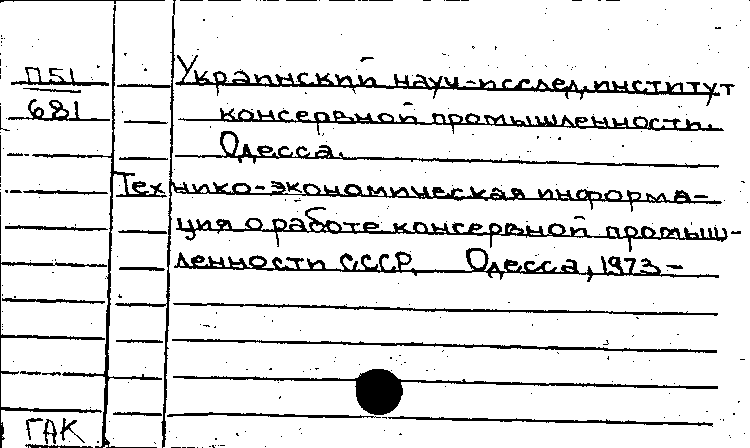 П51
681
Украинский науч-исслед.институт
консервной промышленности.
Одесса.
Технико-экономическая информа-
ция о работе консервной промыш-
ленности СССР. Одесса, 1973-
ГАК